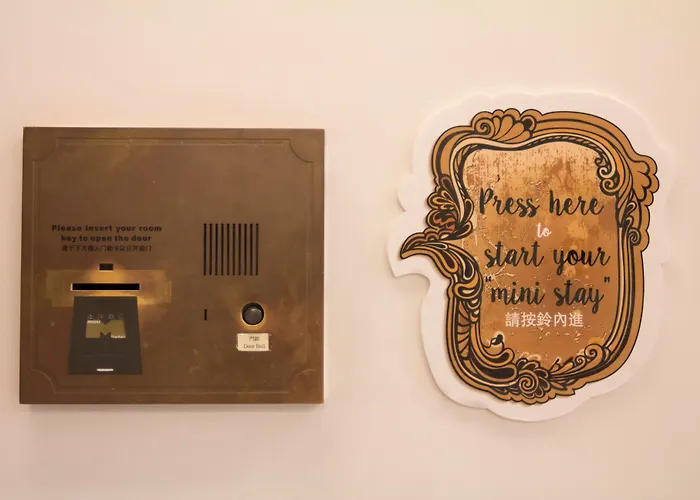 Please insert your room
key to open the door
請于下方插入门匙卡以开启门
門鈴
Door Bell
Press here
to
start your
"mini stay"
請按鈴內進